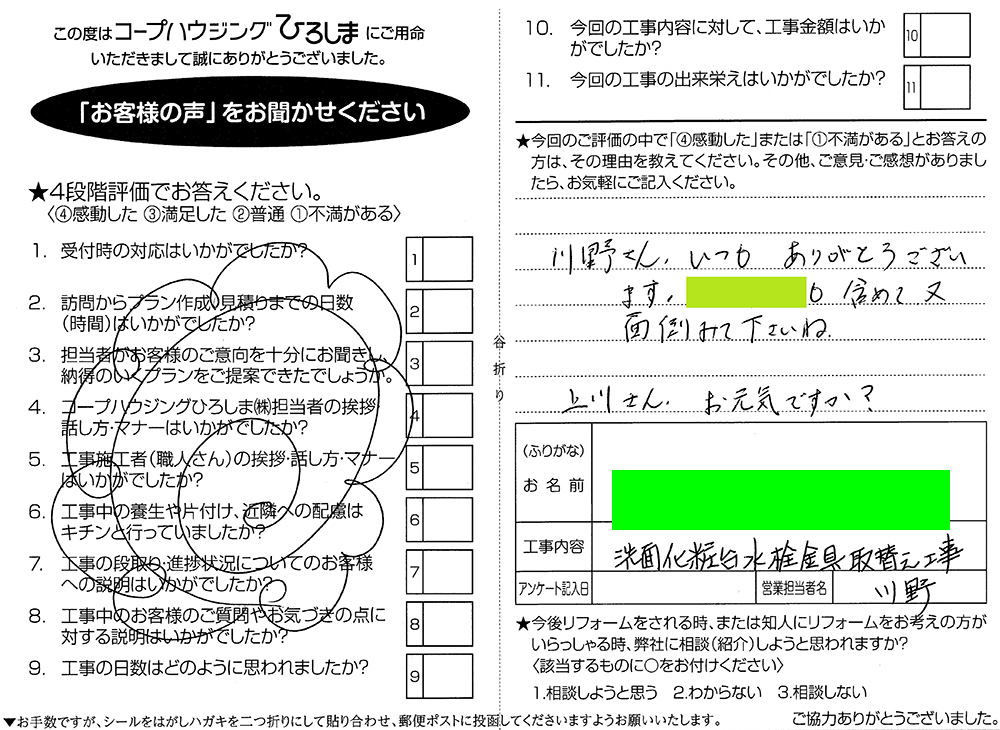 この度はコープハウジングひろしまにご用命
いただきまして誠にありがとうございました。
「お客様の声」をお聞かせください
★4段階評価でお答えください。
〈④感動した ③満足した ②普通 ①不満がある〉
1. 受付時の対応はいかがでしたか?
1
2. 訪問からプラン作成、見積りまでの日数
(時間)はいかがでしたか?
2
3. 担当者がお客様のご意向を十分にお聞きし、
納得のいくプランをご提案できたでしょうか。
3
4. コープハウジングひろしま㈱担当者の挨拶・
話し方・マナーはいかがでしたか?
4
5. 工事施工者(職人さん)の挨拶・話し方・マナー
はいかがでしたか?
5
6. 工事中の養生や片付け、近隣への配慮は
キチンと行っていましたか?
6
7. 工事の段取り・進捗状況についてのお客様
への説明はいかがでしたか?
7
8. 工事中のお客様のご質問やお気づきの点に
対する説明はいかがでしたか?
8
9. 工事の日数はどのように思われましたか?
9
谷折り
10. 今回の工事内容に対して、工事金額はいか
がでしたか?
10
11. 今回の工事の出来栄えはいかがでしたか?
11
★今回のご評価の中で「④感動した」または「①不満がある」とお答えの
方は、その理由を教えてください。その他、ご意見・ご感想がありまし
たら、お気軽にご記入ください。
川野さん、いつも ありがとうござい
ます。 も 含めて 又
面倒みて下さいね。
上川さん、お元気ですか?
(ふりがな)
お名前
工事内容 洗面化粧台水栓金具取替え工事
アンケート記入日 営業担当者名 川野
★今後リフォームをされる時、または知人にリフォームをお考えの方が
いらっしゃる時、弊社に相談(紹介)しようと思われますか?
〈該当するものに○をお付けください〉
1.相談しようと思う 2.わからない 3.相談しない
▼お手数ですが、シールをはがしハガキを二つ折りにして貼り合わせ、郵便ポストに投函してくださいますようお願いいたします。
ご協力ありがとうございました。